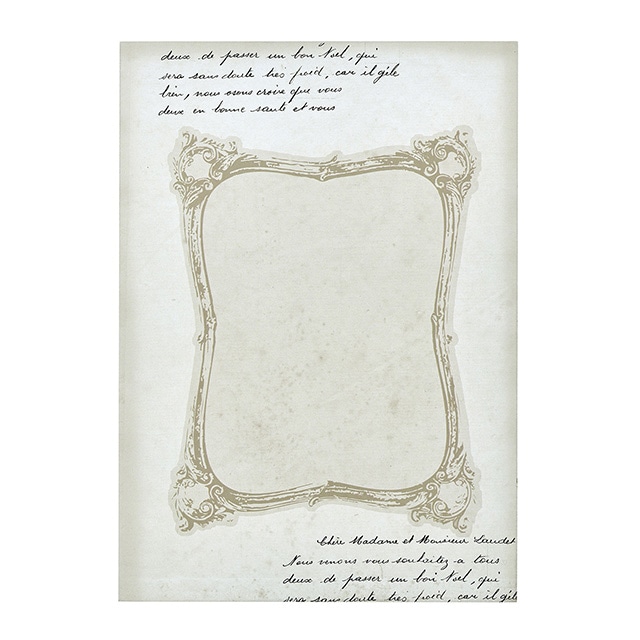 deux de passer un bon Noel, qui
sera sans doute très froid, car il gèle
bien, nous osons croire que vous
deux en bonne santé et vous
Chère Madame et Monsieur Laudet
Nous venons vous souhaitez a tous
deux de passer un bon Noel, qui
sera sans doute très froid, car il gèle